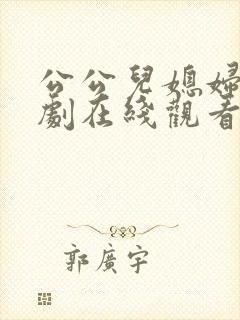 公公兒媳婦
劇在綫觀看
郭廣宇